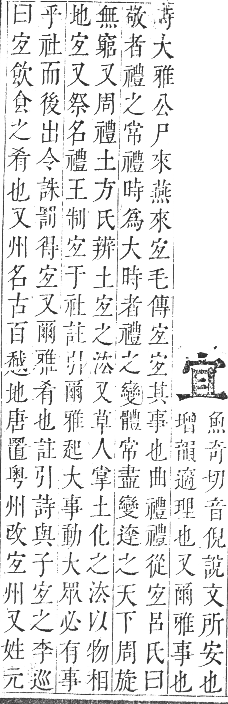 宜
魚奇切音倪說文所安也
增韻適理也又爾雅事也
詩大雅公尸來燕來宐毛傳宐宐其事也曲禮禮從宐呂氏曰
敬者禮之常禮時爲大時者禮之變體常盡變逹之天下周旋
無窮又周禮土方氏辨土宐之㳒又草人掌土化之㳒以物相
地宐又祭名禮王制宐于社註引爾雅起大事動大眾必有事
乎社而後出令誅罰得宐又爾雅肴也註引詩與子宐之李巡
曰宐飲食之肴也又州名古百越地唐置粵州改宐州又姓元